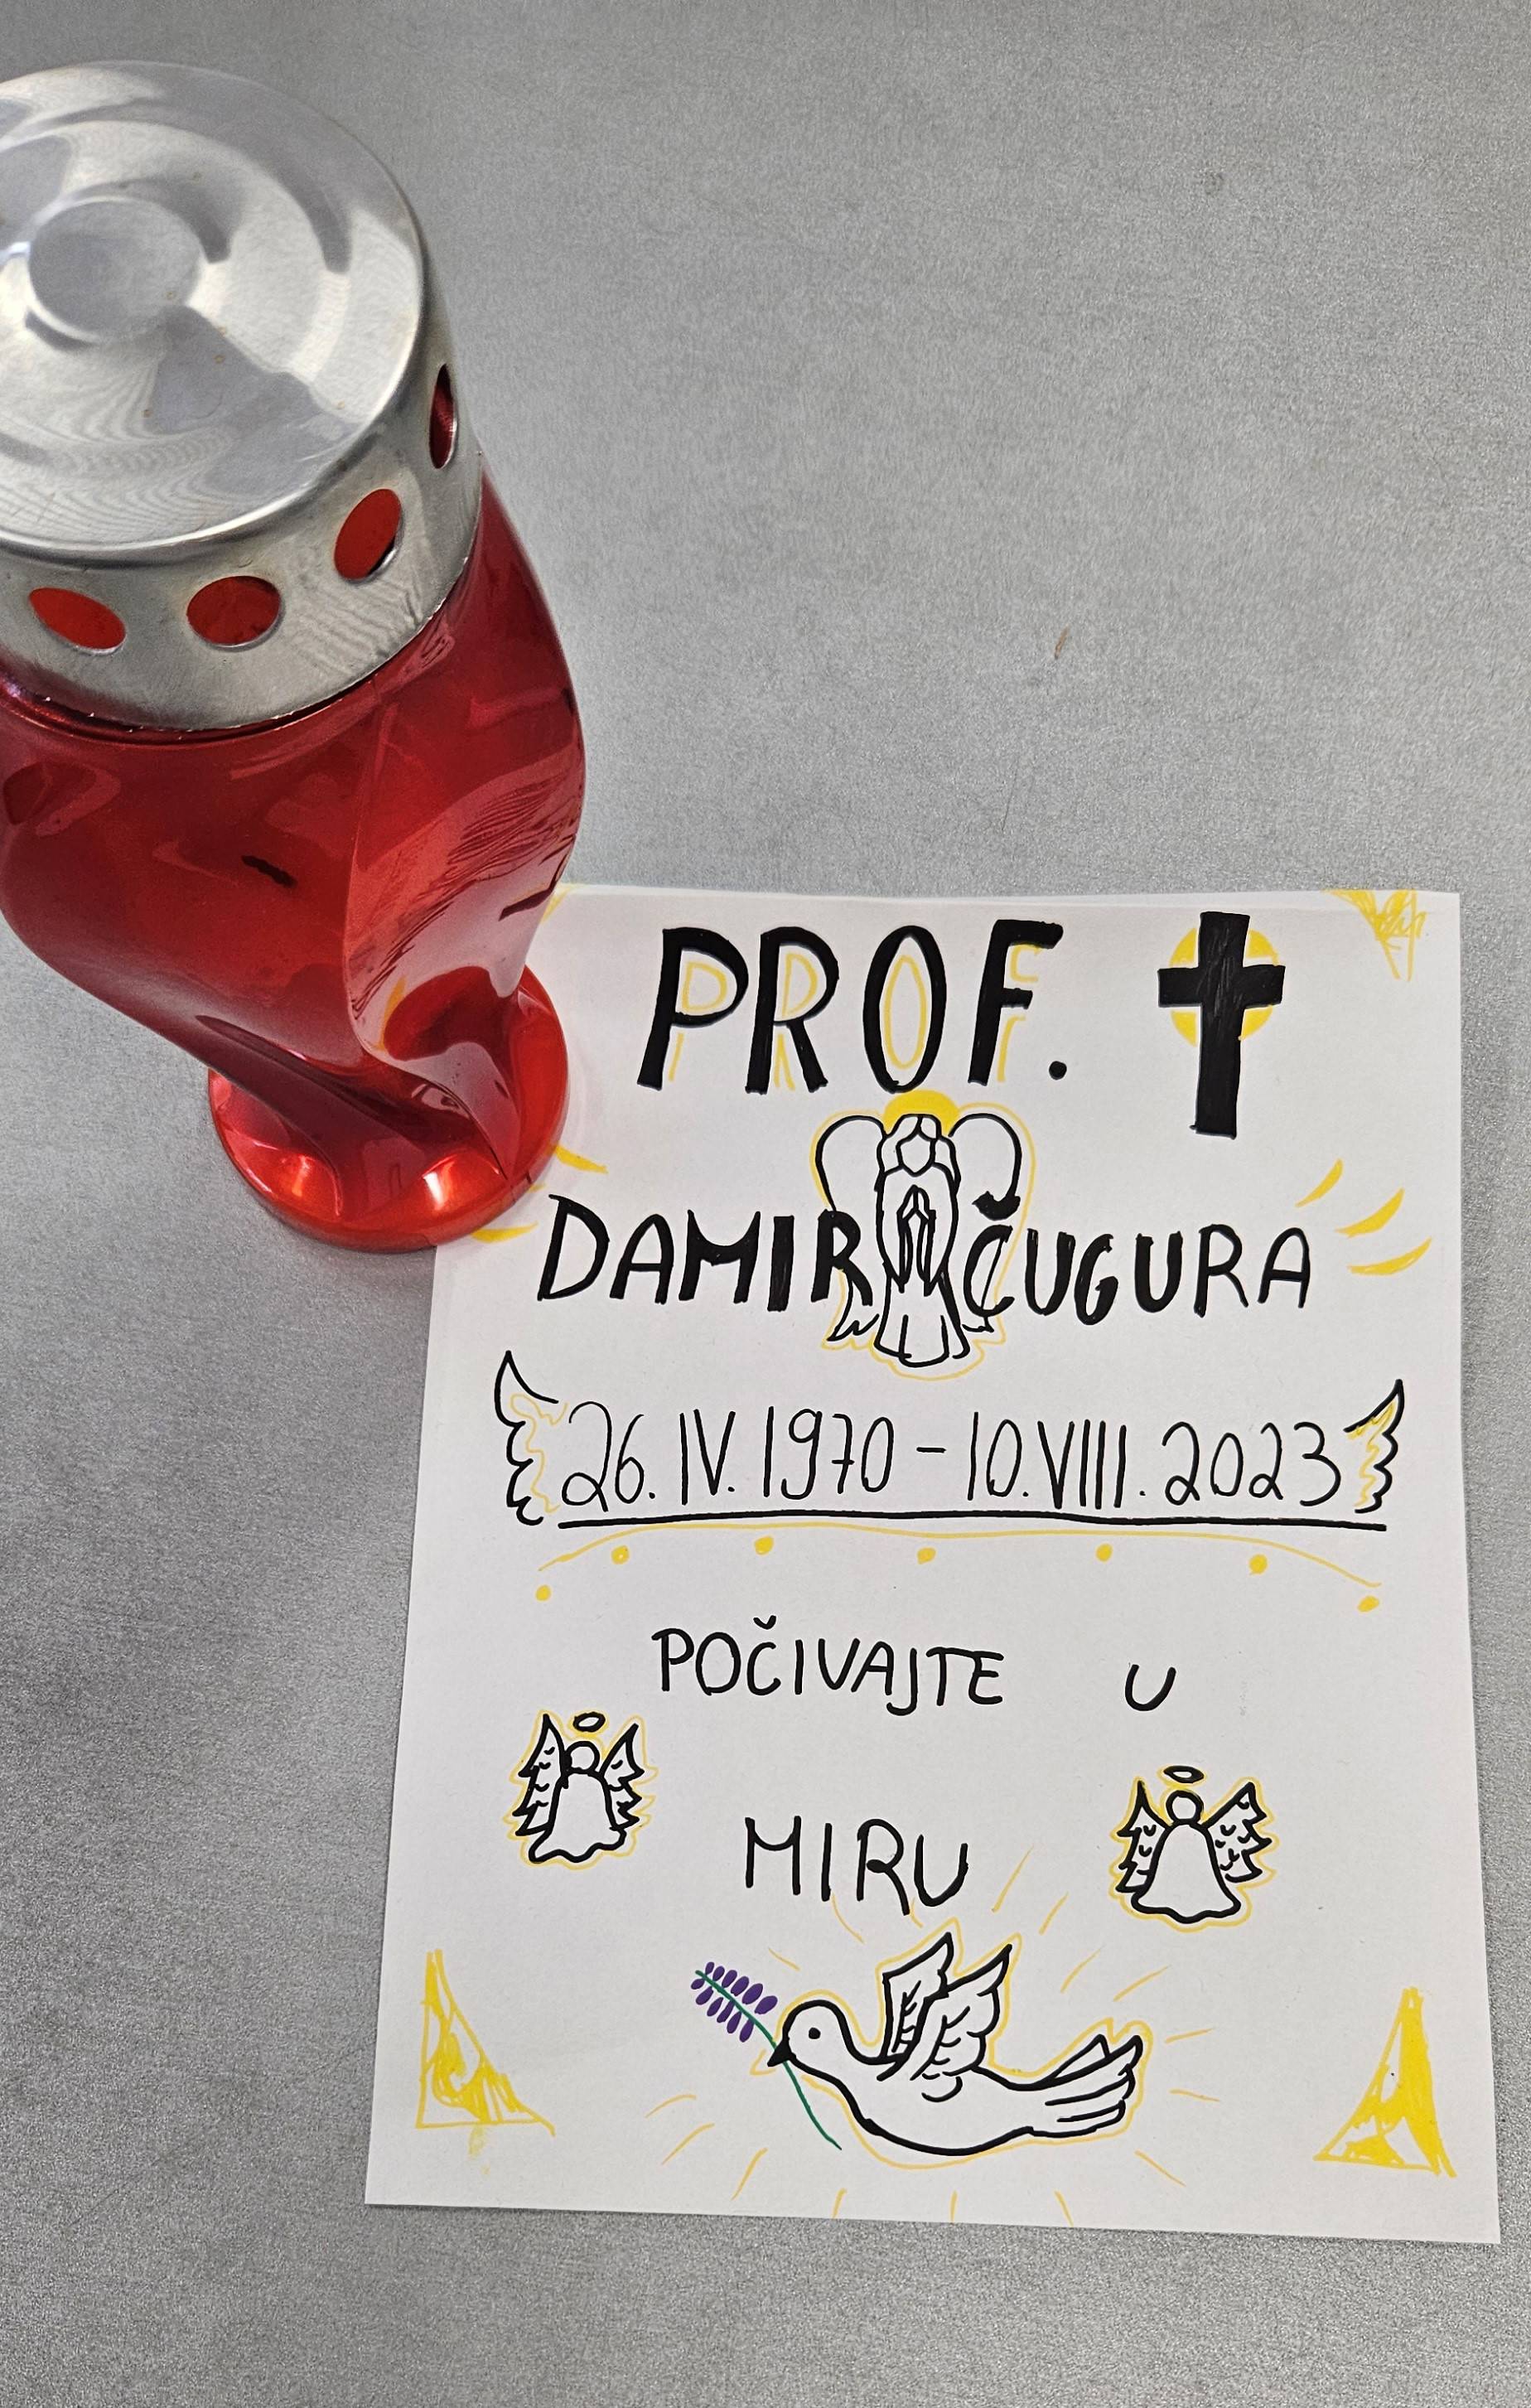 PROF.
DAMIR ČUGURA
26. IV. 1970 - 10. VIII. 2023
POČIVAJTE U
MIRU